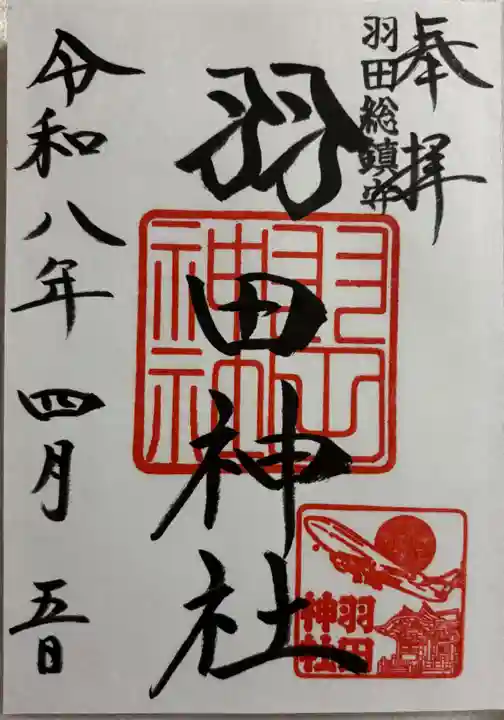 奉拝
羽田総鎮守
羽田神社
羽田
神社
羽田
神社
令和八年四月五日